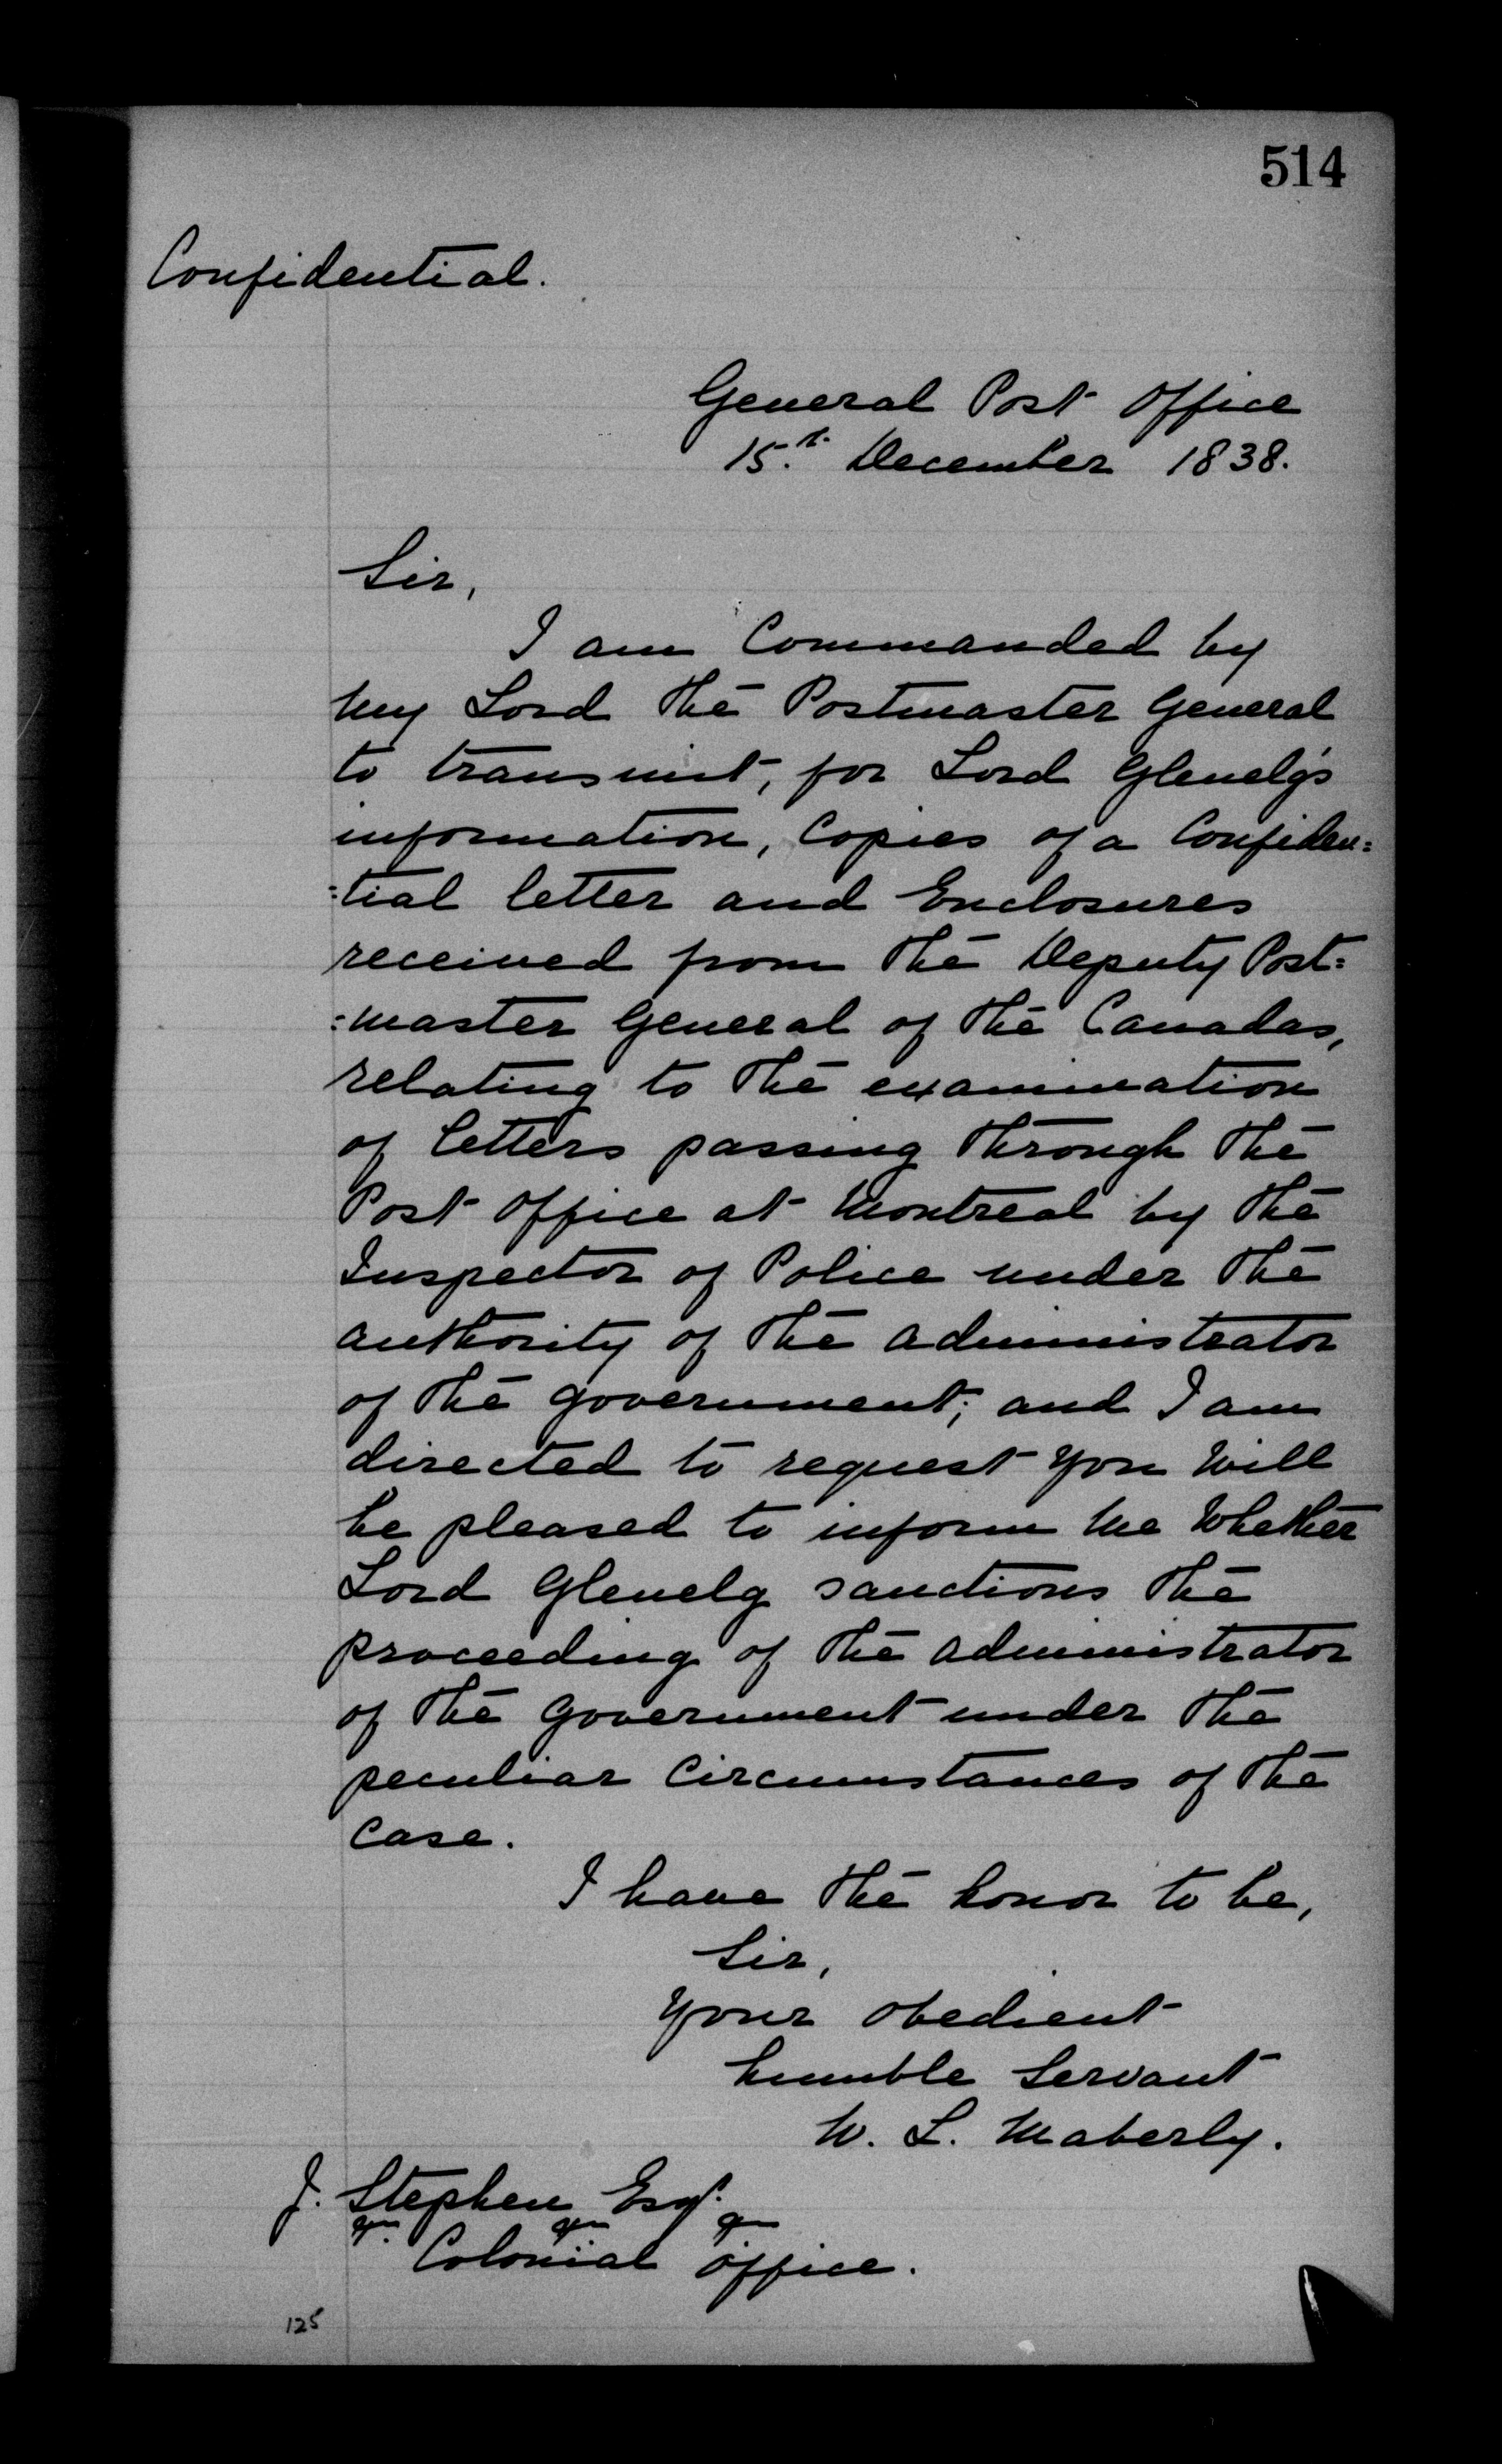 514
Confidential.
General Post Office
15.th December 1838.
Sir,
I am Commanded by
My Lord the Postmaster General
to transmit, for Lord Glenelg's
information, Copies of a Confiden=
=tial letter and Enclosures
received from the Deputy Post=
=master General of the Canadas,
relating to the examination
of letters passing through the
Post Office at Montreal by the
Inspector of Police under the
authority of the Administrator
of the Government; and I am
directed to request you will
be pleased to inform me whether
Lord Glenelg sanctions the
proceeding of the Administrator
of the Government under the
peculiar Circumstances of the
Case.
I have the honor to be,
Sir,
Your obedient
humble Servant
W. L. Maberly.
J. Stephen Esqr.
Colonial Office.
125